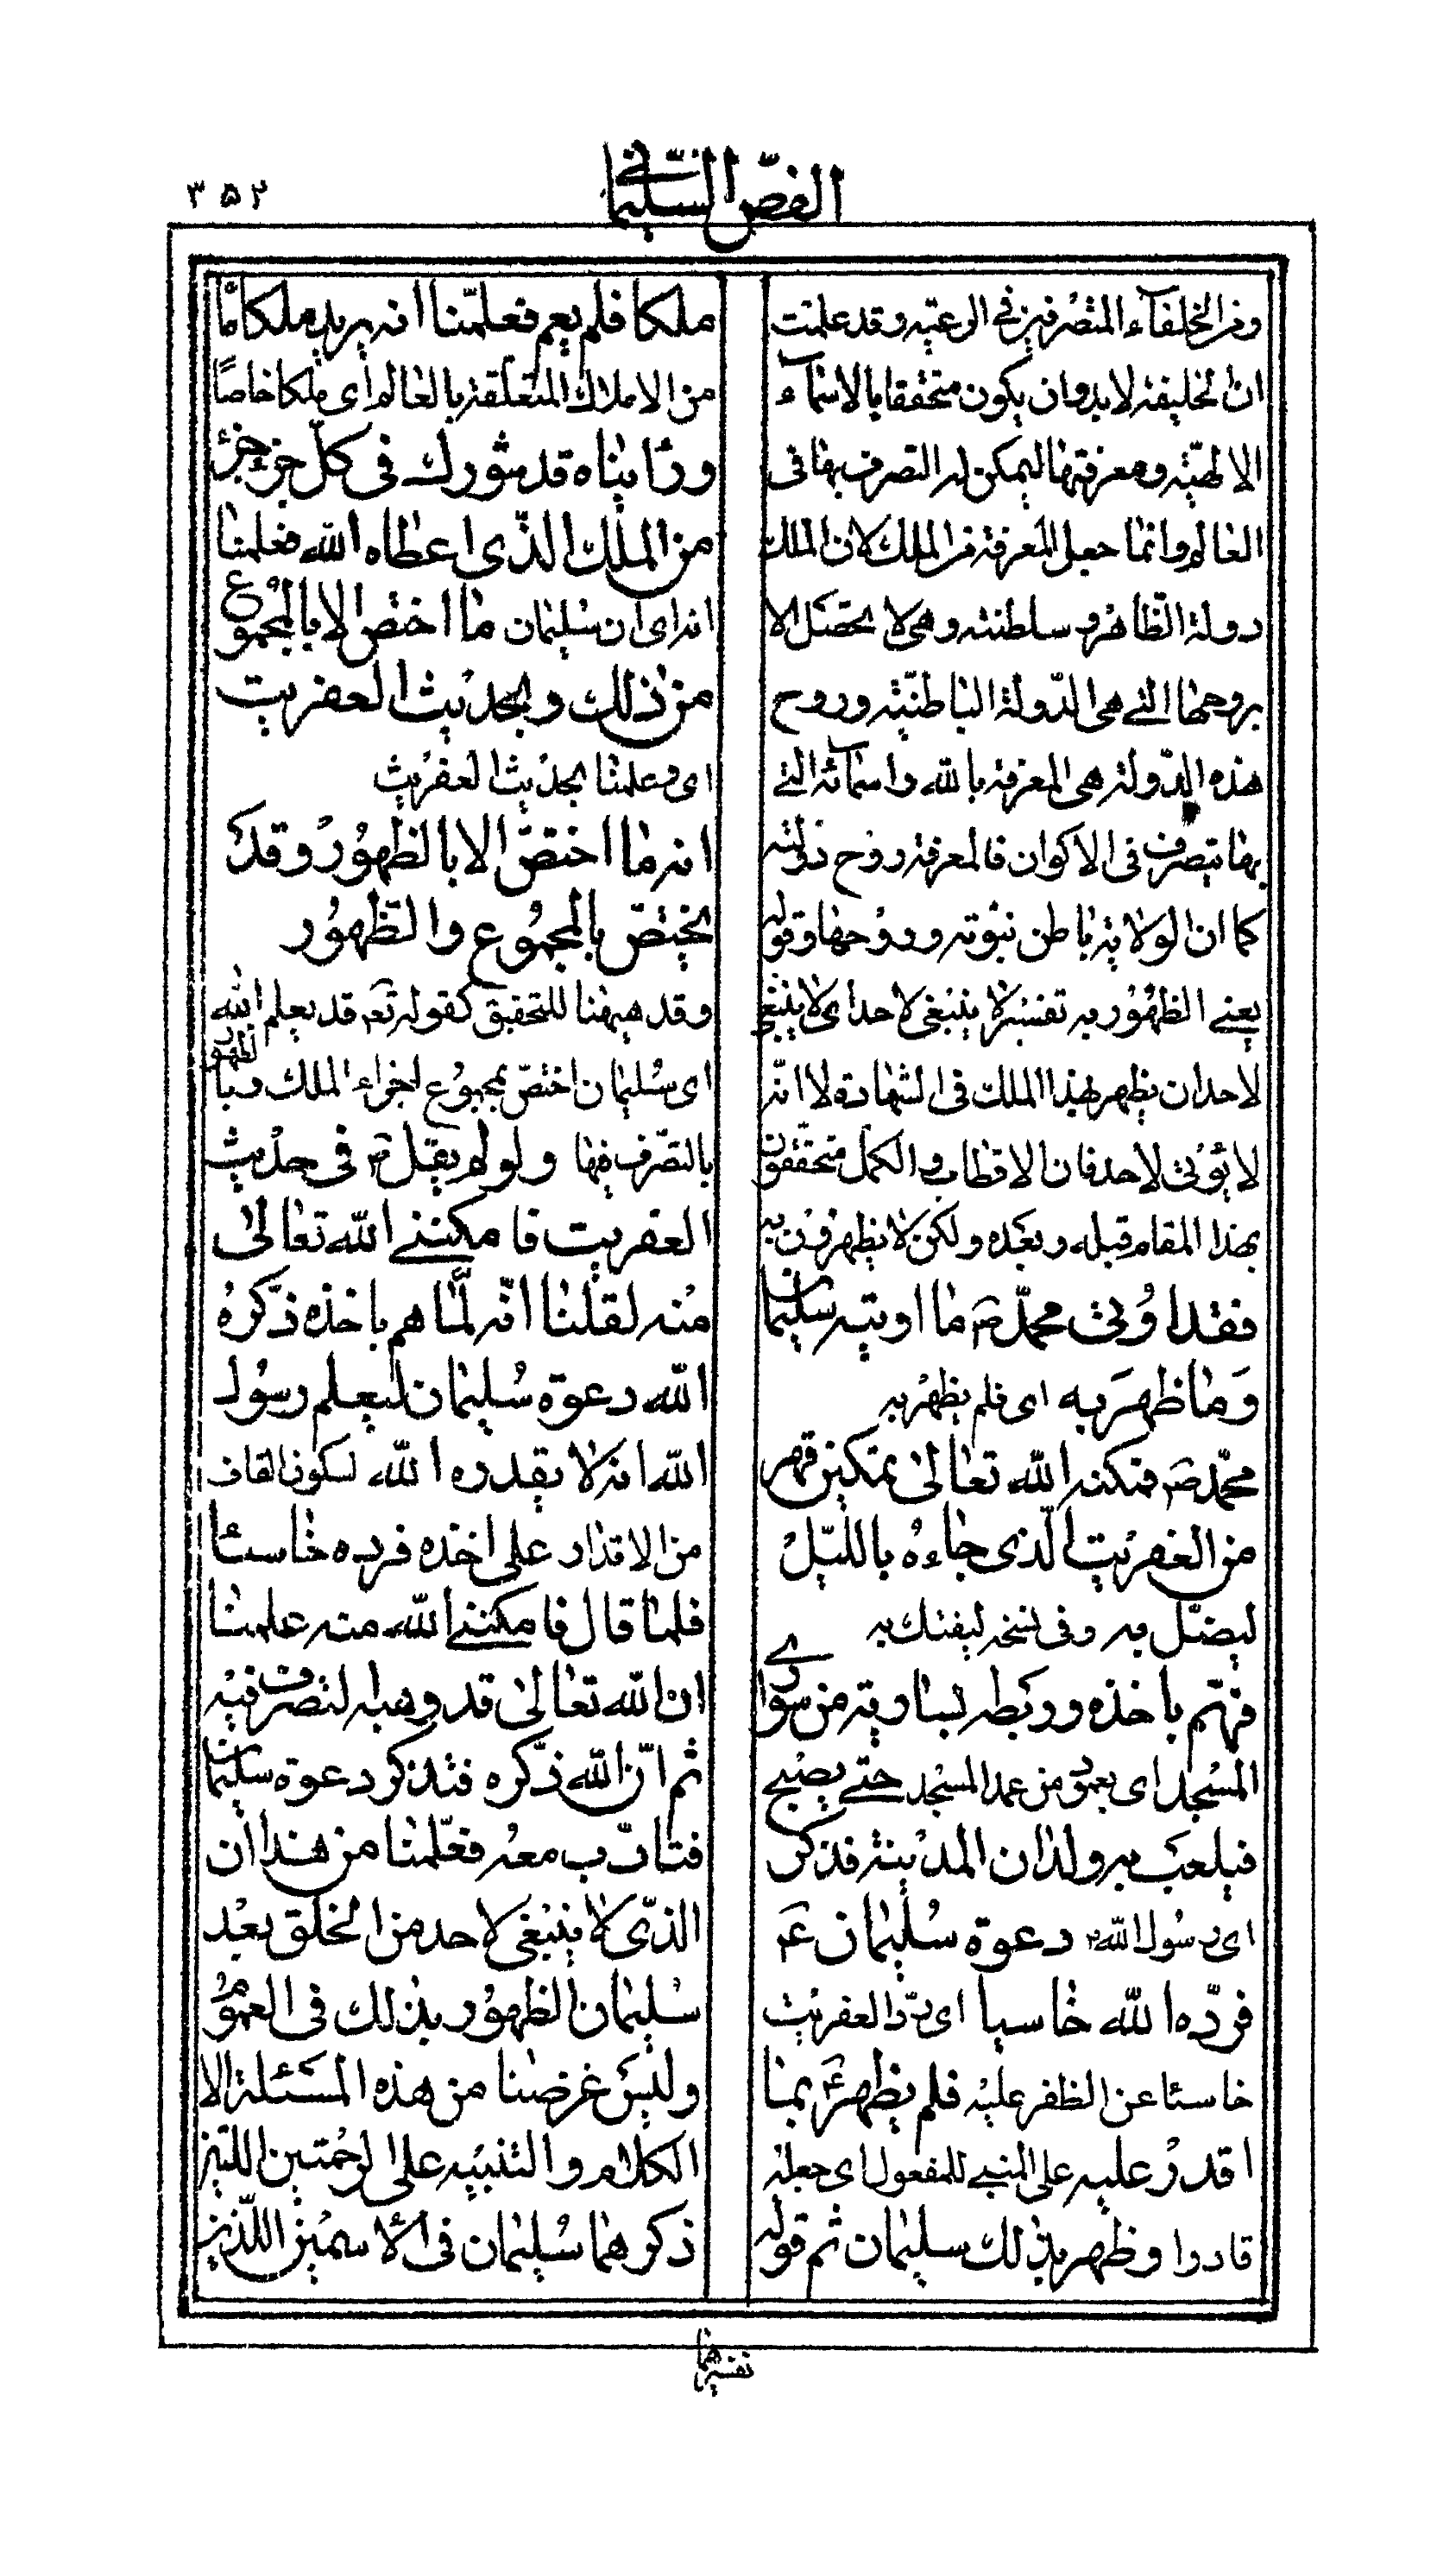 الفص السليماني
٣٥٢
ومن الخلفاء المتصرفين في الرعية وقد علمت
ان الخليفة لابد وان يكون متحققا بالاسماء
الالهية ومعرفتها ليمكن له التصرف بها في
العالم وانما جعل المعرفة من الملك لان الملك
دولة الظاهر وسلطنته وهي لا تحصل الا
بروحها التي هي الدولة الباطنية وروح
هذه الدولة هي المعرفة بالله واسمائه التي
بها يتصرف في الاكوان فالمعرفة روح دولته
كما ان الولاية باطن نبوته وروحها وقوله
يعني الظهور به تفسير لا ينبغي لاحد اى لا ينبغي
لاحد ان يظهر بهذا الملك في الشهادة لا انه
لا يؤتى لاحد فان الاقطاب والكمل متحققون
بهذا المقام قبله وبعده ولكن لا يظهرون به
فقد اوتى محمد ص ما اوتيه سليمان
وما ظهر به اى فلم يظهر به
محمد ص فمكنه الله تعالى تمكين قهر
من العفريت الذى جاءه بالليل
ليضل به وفى نسخه ليفتك به
فهم باخذه وربطه بسارية من سوارى
المسجد اى بعمود من عمد المسجد حتى يصبح
فيلعب به ولدان المدينة فذكر
اى رسول الله دعوة سليمان ع
فرده الله خاسيا اى رد العفريت
خاسئا عن الظفر عليه فلم يظهر ع بما
اقدر عليه على المبنى للمفعول اى جعله
قادرا وظهر بذلك سليمان ثم قوله
ملكا فلم يعم فعلمنا انه يريد ملكا ما
من الاملاك المتعلقة بالعالم اى ملكا خاصا
ورأيناه قد شورك فى كل جزء جزء
من الملك الذى اعطاه الله فعلمنا
انه اى ان سليمان ما اختص الا بالمجموع
من ذلك وبحديث العفريت
اى وعلمنا بحديث العفريت
انه ما اختص الا بالظهور وقد
يختص بالمجموع والظهور
وقد هيهنا للتحقيق كقوله تعم قد يعلم الله
اى سليمان اختص بمجموع اجزاء الملك وبالظهور
بالتصرف فيها ولو لم يقل ص فى حديث
العفريت فامكننى الله تعالى
منه لقلنا انه لما هم باخذه ذكره
الله دعوة سليمان ليعلم رسول
الله انه لا يقدره الله لسكون القاف
من الاقدار على اخذه فرده خاسئا
فلما قال فامكننى الله منه علمنا
ان الله تعالى قد وهبه التصرف فيه
ثم ان الله ذكره فتذكر دعوة سليمان
فتادب معه فعلمنا من هذا ان
الذى لا ينبغى لاحد من الخلق بعد
سليمان الظهور بذلك فى العموم
وليس غرضنا من هذه المسئلة الا
الكلام والتنبيه على الرحمتين اللتين
ذكرهما سليمان فى الاسمين اللذين
تفسيرهما